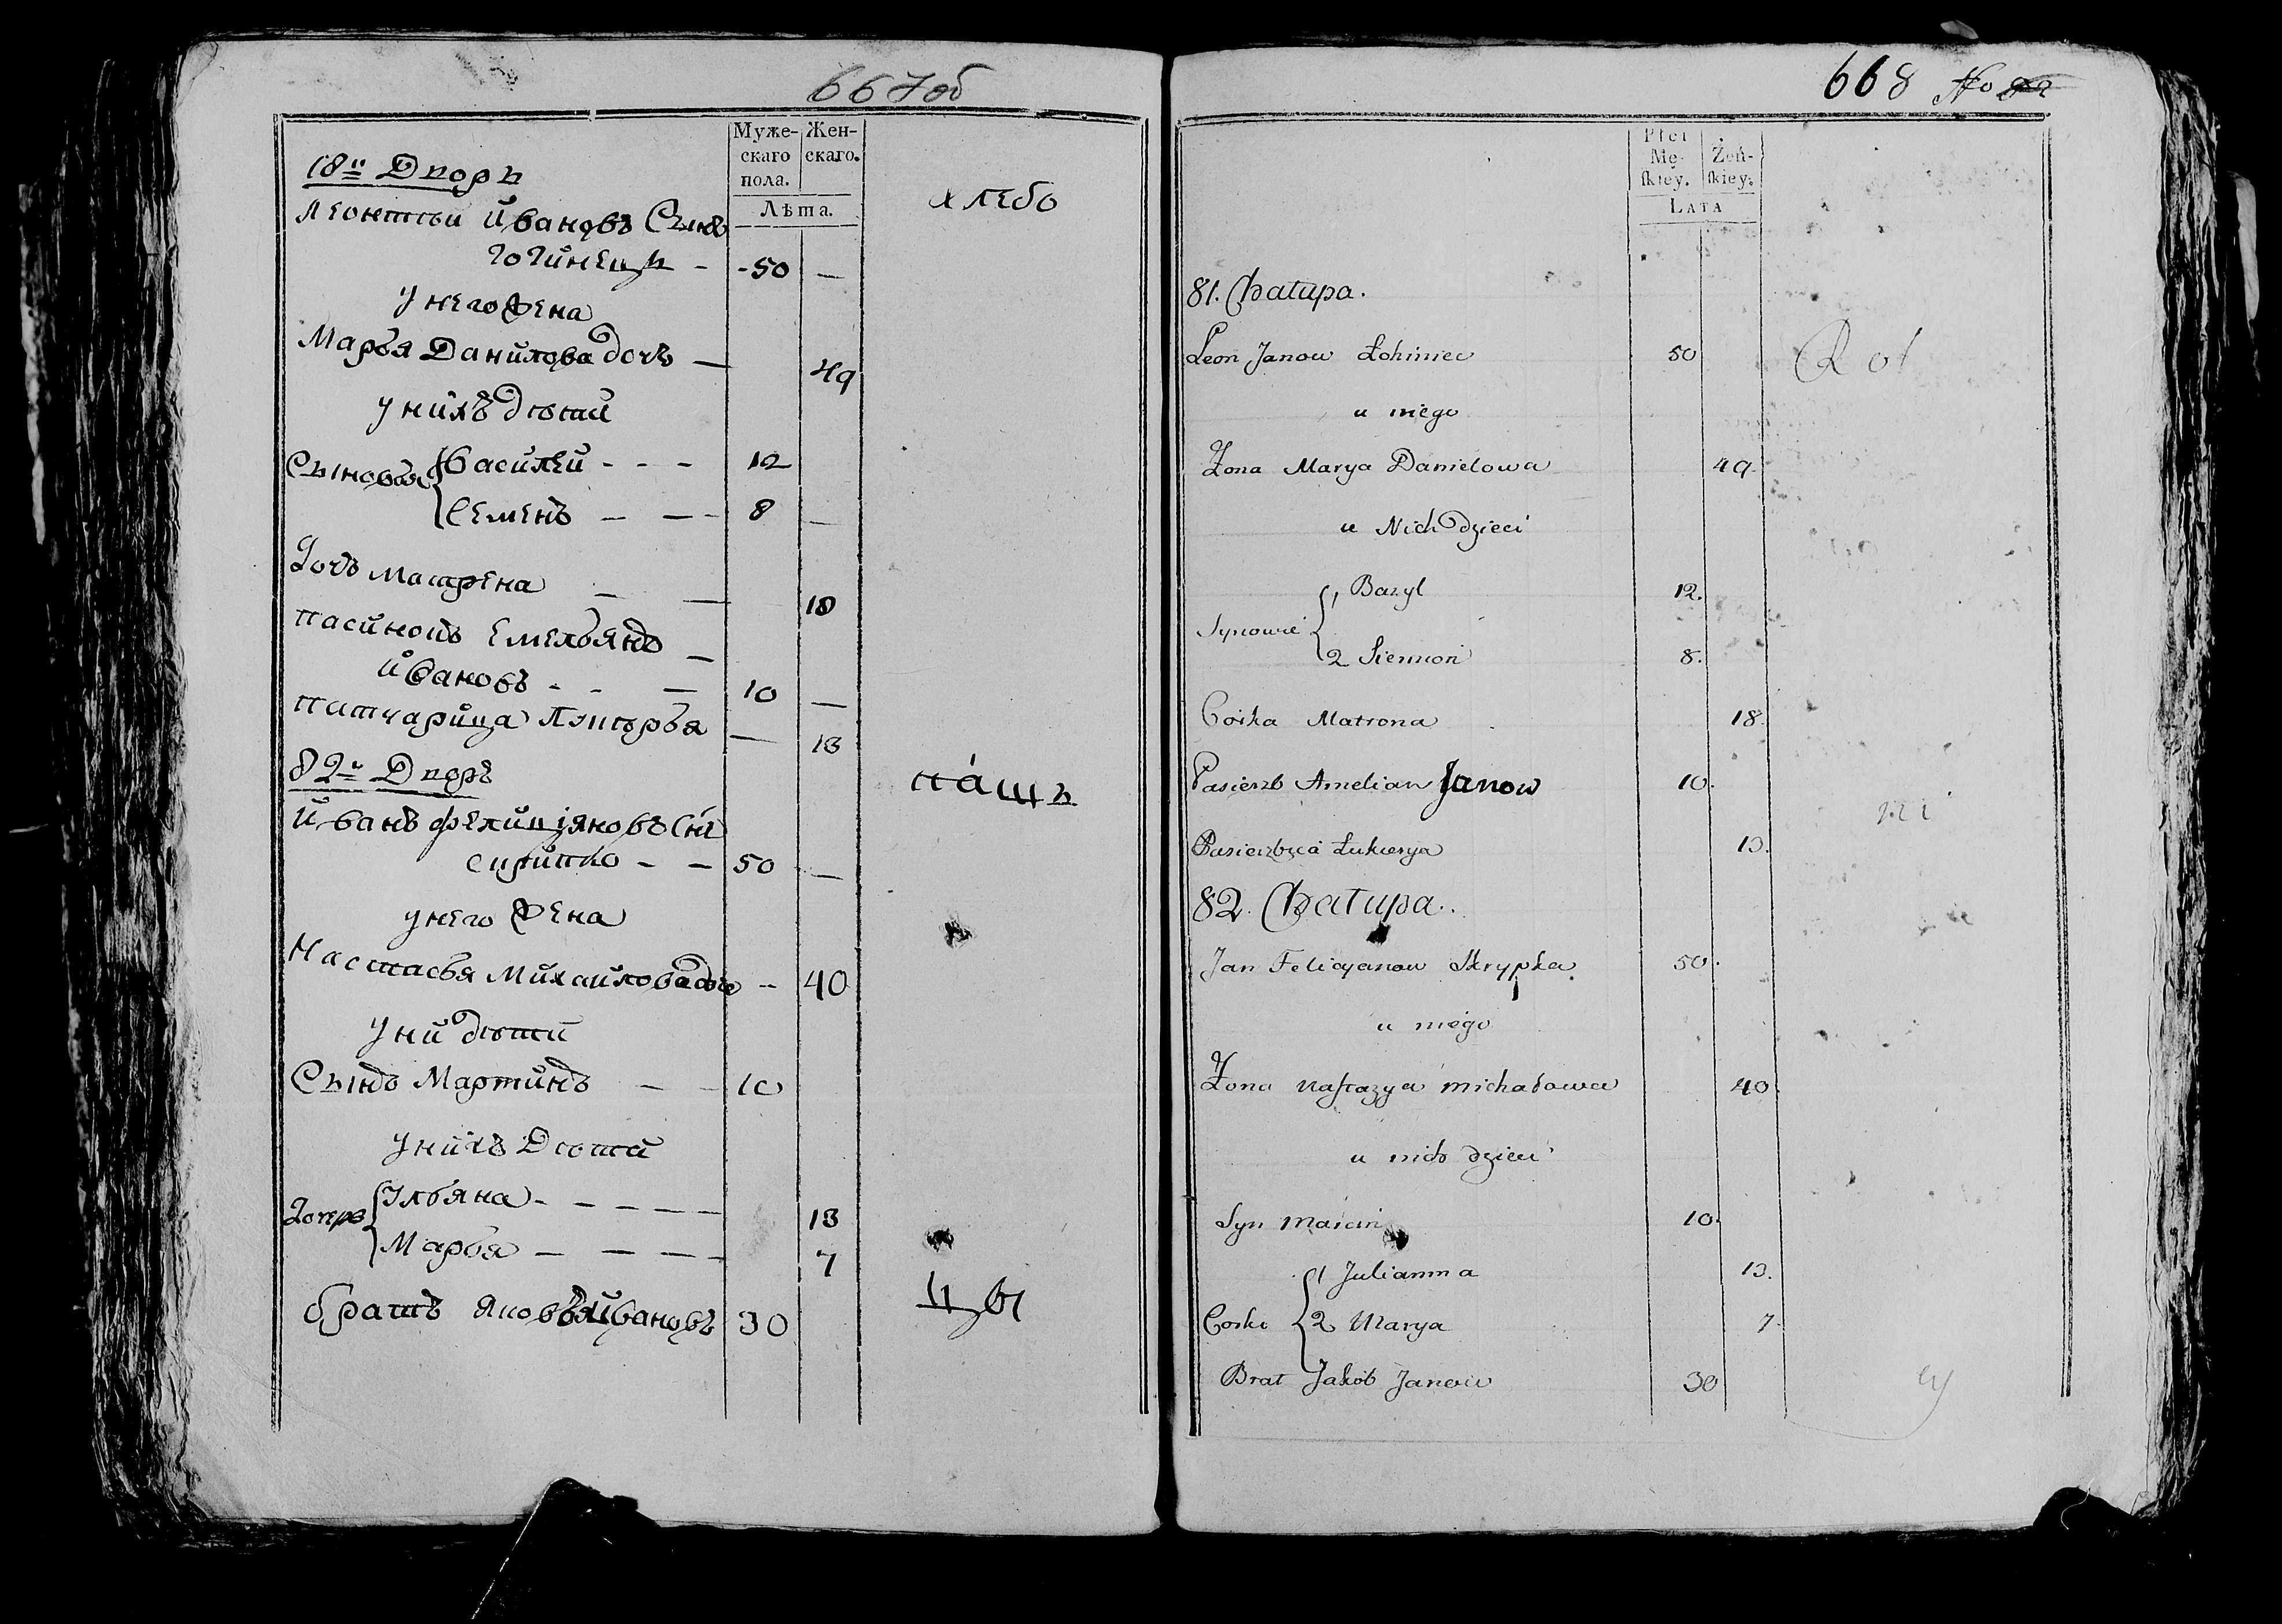 667об
Муже-
скаго
пола.
Жен-
скаго.
Лѣта.
18й Дворъ
Леонтеи Ивановъ Сынъ
Логинецъ - - 50 —
У него Жена
Марья Данилова дочь — 49
у нихъ дѣти
Сыновья { Василей - - - 12
Семенъ — — - 8 —
Дочь Матрена — — 18
пасинокъ Емельянъ —
Ивановъ - - — 10 —
патчарица Лукерья — 13
хлебо
82й Дворъ
Иванъ Фелиціяновъ Снъ
Скрипко - — 50 —
у него Жена
Настасья Михаилова дочь - 40
У ни дѣти
Сынъ Мартинъ — - 10
У нихъ Дѣти
Дочерь { Ульяна - - - — — 13
Марья — — — - 7
братъ Яковъ Ивановъ 30
пащъ
цы
668 No
Płci
Mę-
ſkiey.
Żeń-
ſkiey.
LATA
81. Chatupa.
Leon Janow Łohiniec 50
u niego
Żona Marya Danielowa 49
u Nich dzieci
Synowie { 1 Bazyl 12.
2 Siemion 8.
Corka Matrona 18.
Pasierzb Amelian Janow 10.
Pasierzbica Łukerya 13.
Rol
ni
82. Chatupa.
Jan Felicyanow Skrypka 50.
u niego
Żona Naſtazya Michałowa 40.
u nich dzieci
Syn Marcin 10.
Corki { 1 Julianna 13.
2 Marya 7.
Brat Jakób Janow 30
cy